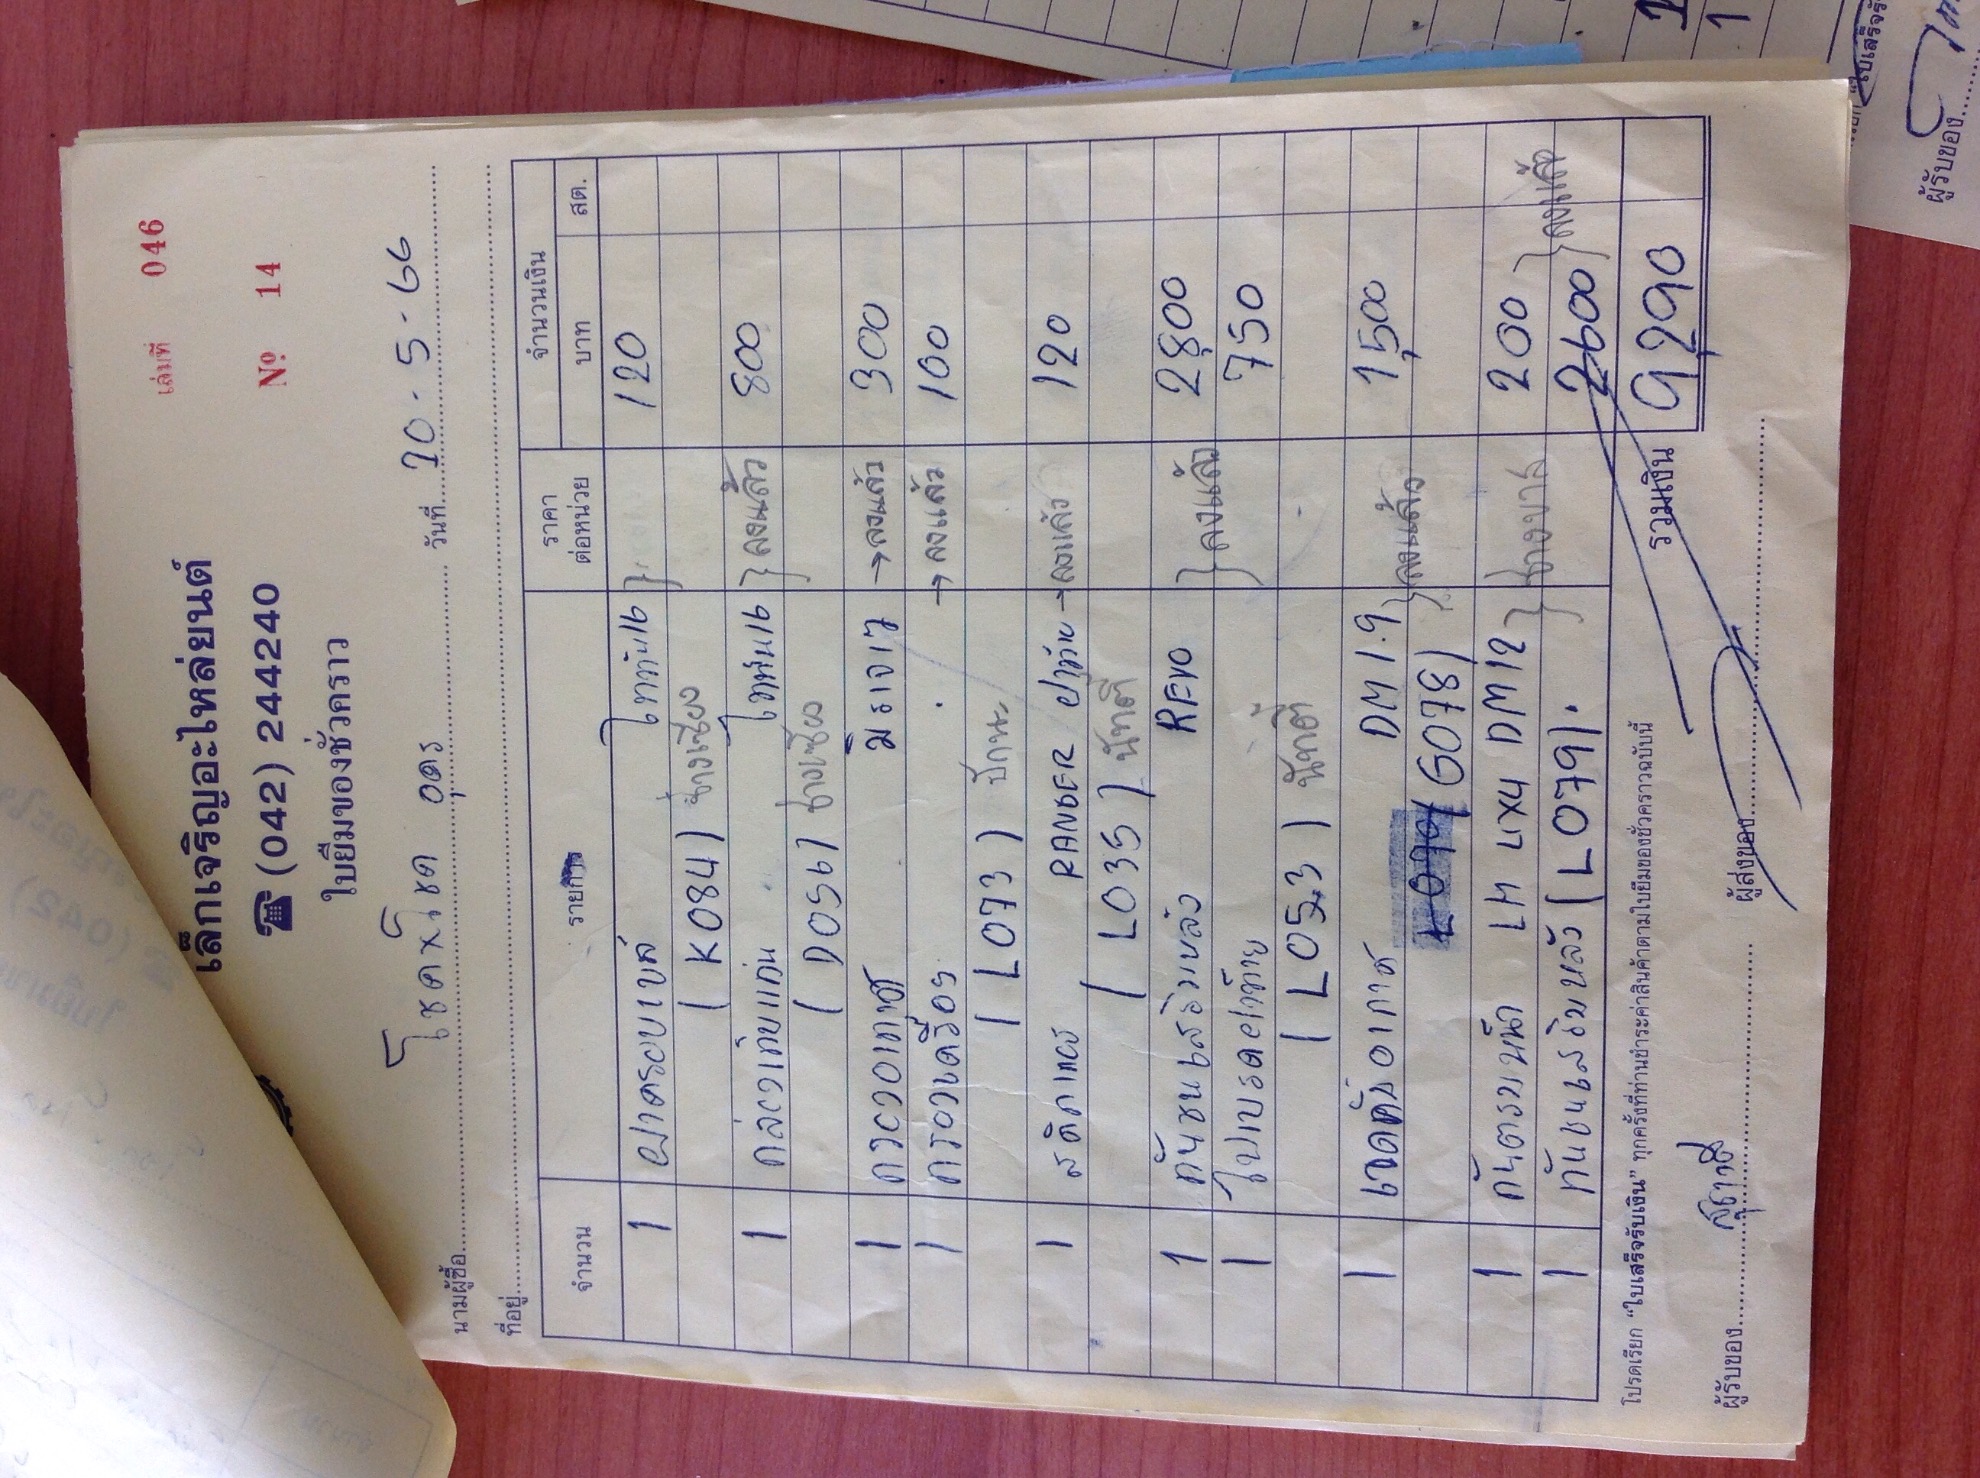 เล่มที่ 046
เล็กเจริญอะไหล่ยนต์
☎ (042) 244240
Nº 14
ใบยืมของชั่วคราว
นามผู้ซื้อ โชคโชค อุดร วันที่ 20-5-66
ที่อยู่
จำนวน รายการ ราคาต่อหน่วย จำนวนเงิน
บาท สต.
1 ฝาครอบเบส ไททัน16 120
(K084) ช่างเชียง
1 กล่องเก็บแก่น ไททัน16 } ลงแล้ว 800
(D056) ช่างเชียง
1 กรองอากาศ มิราจ17 →ลงแล้ว 300
1 กรองเครื่อง → ลงแล้ว 100
(L073) ปักนะ
1 สติกเกอร์ RANGER ฝาท้าย →ลงแล้ว 120
(L035) นัทตี้
1 กันชนเสริมหลัง REVO } ลงแล้ว 2,800
1 ใบเบรคฝาท้าย 750
(L053) นัทตี้
1 เกจ์อากาศ DM19 } ลงแล้ว 1,500
(G078)
1 กันตรมหน้า LH 4x4 DM12 } ช่างบาส 200 } ลงแล้ว
1 กันชนเสริมหลัง (L079). 2600
รวมเงิน 9,290
โปรดเรียก "ใบเสร็จรับเงิน" ทุกครั้งที่ท่านชำระค่าสินค้าตามใบยืมของชั่วคราวฉบับนี้
ผู้รับของ สุชาติ ผู้ส่งของ
ผู้รับของ